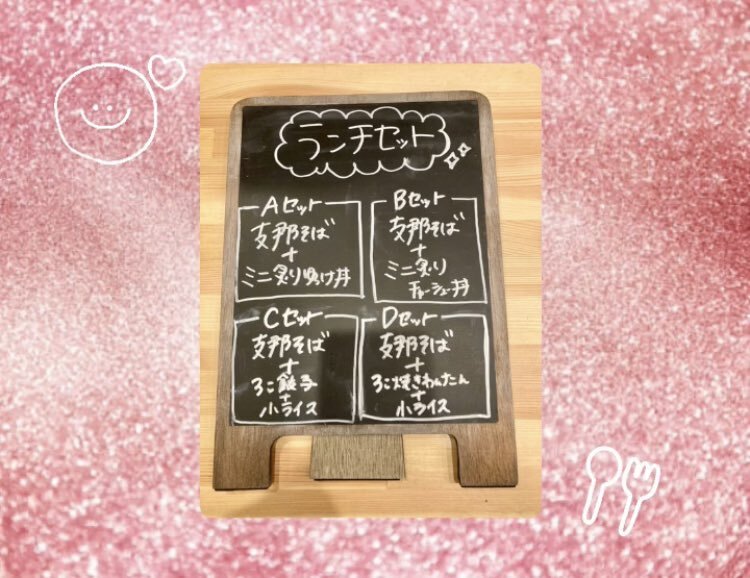 ランチセット
Aセット
支那そば
+
ミニ炙り丼
Bセット
支那そば
+
ミニ炙り
チャーシュー丼
Cセット
支那そば
+
3こ餃子
+
小ライス
Dセット
支那そば
+
3こ焼きわんたん
+
小ライス